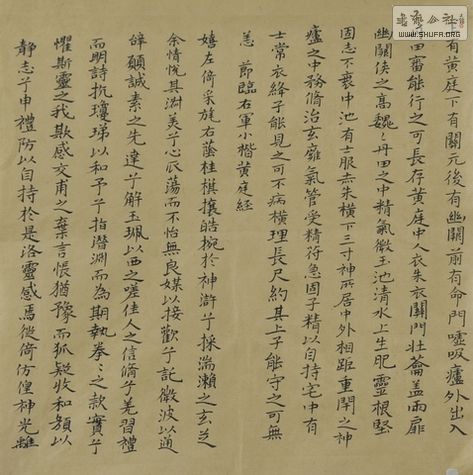 書藝公社
WWW.SHUFA.ORG
上有黄庭下有關元後有幽闕前有命門噓吸廬外出入
丹田審能行之可長存黄庭中人衣朱衣關門壯籥盖兩扉
幽闕俠之高魏〻丹田之中精氣微玉池清水上生肥靈根堅
固志不衰中池有士服赤朱横下三寸神所居中外相距重閇之神
廬之中務脩治玄廱氣管受精符急固子精以自持宅中有
士常衣絳子能見之可不病横理長尺約其上子能守之可無
恙 節臨右軍小楷黄庭經
嬉左倚采旄右蔭桂棋攘皓捥於神滸兮採湍瀨之玄芝
余情悅其淑美兮心振蕩而不怡無良媒以接歡兮託微波以通
辝願誠素之先達兮解玉珮以要之嗟佳人之信脩兮羌習禮
而明詩抗瓊珶以和予兮指潛淵而為期執拳〻之款實兮
懼斯靈之我欺感交甫之棄言悵猶豫而狐疑收和顏以
靜志兮申禮防以自持於是洛靈感焉徙倚仿偟神光離